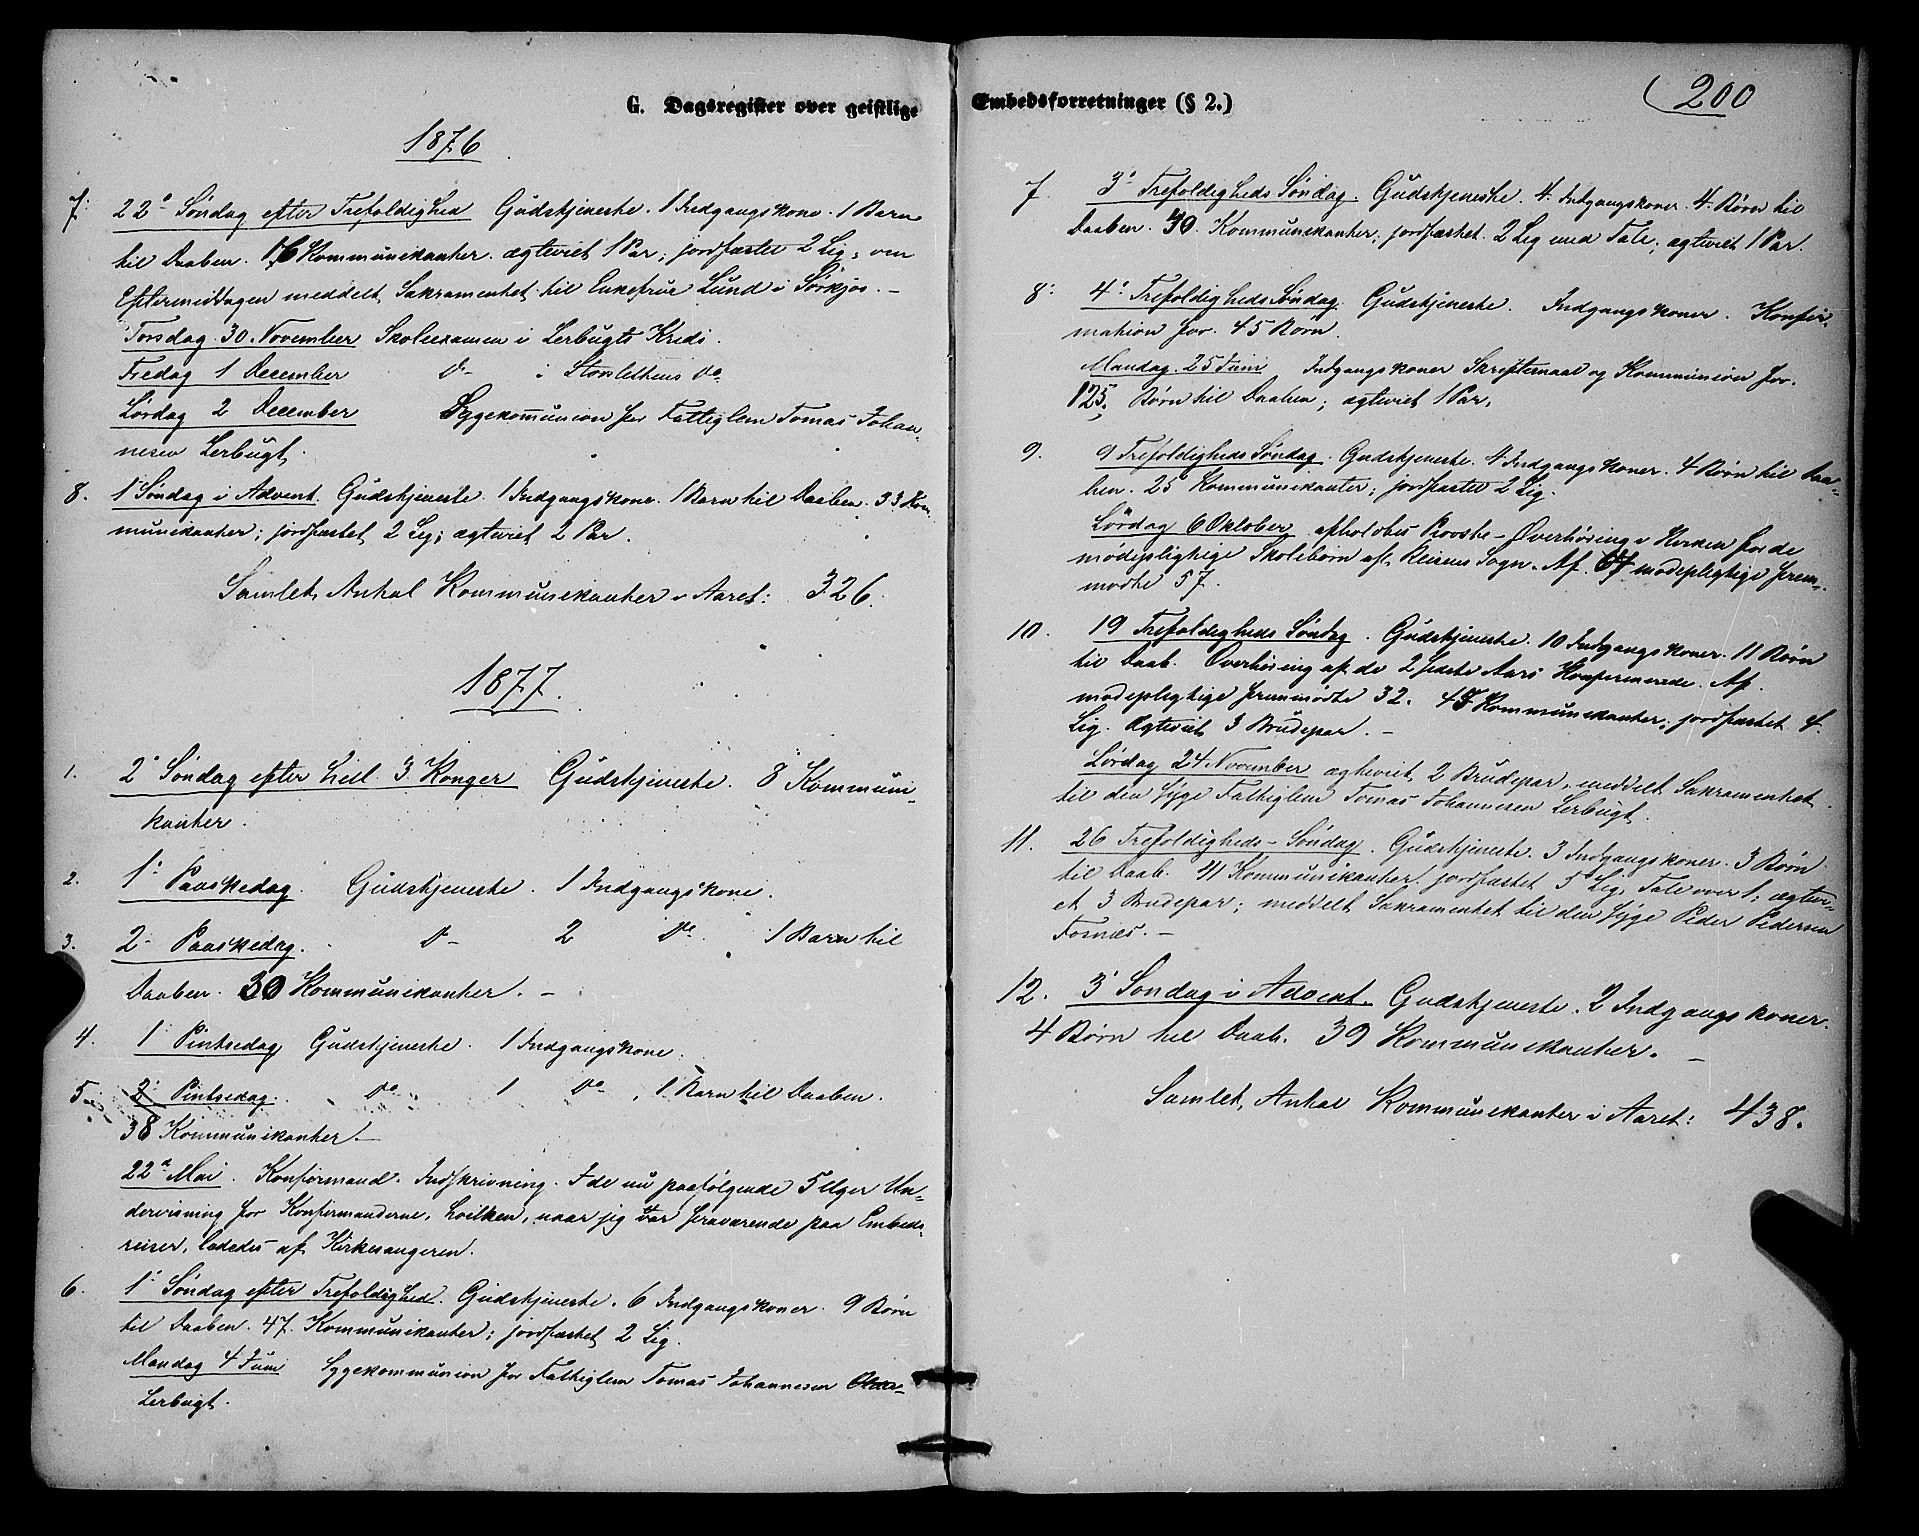 G. Dagsregister over geistlige
1876
7. 22' Søndag efter Trefoldighed Gudstjeneste. 1 Indgangskone. 1 Barn
til Daaben. 16 Kommunikanter. ægteviet 1 Par; jordfæstet 2 Lig, om
Eftermiddagen meddelt Sakramentet til Enkefrue Lund i Sørkjos. -
Torsdag 30. November Skoleexamen i Lerbugts Kreds.
Fredag 1 December do i Storslettens do.
Lørdag 2 December Sygekommunion for Fattiglem Tomas Johan-
nesen Lerbugt.
8. 1 Søndag i Advent. Gudstjeneste. 1 Indgangskone. 1 Barn til Daaben. 33 Kom-
munikanter; jordfæstet 2 Lig; ægteviet 2 Par.
Samlet Antal Kommunikanter i Aaret: 326.
1877.
1. 2' Søndag efter Hell. 3 Konger Gudstjeneste. 8 Kommuni-
kanter.
2. 1' Paaskedag. Gudstjeneste. 1 Indgangskone.
3. 2' Paaskedag. do 2 do. 1 Barn til
Daaben. 30 Kommunikanter. -
4. 1' Pintsedag Gudstjeneste. 1 Indgangskone.
5. 2' Pintsedag. do 1 do, 1 Barn til Daaben.
38 Kommunikanter. -
22de Mai. Konfirmand-Indskrivning. I de nu paafølgende 5 Uger Un-
dervisning for Konfirmanderne, hvilken, naar jeg var fraværende paa Embeds-
reiser, lededes af Kirkesangeren.
6. 1' Søndag efter Trefoldighed. Gudstjeneste. 6 Indgangskoner. 9 Børn
til Daaben. 47. Kommunikanter; jordfæstet 2 Lig.
Mandag 4 Juni Sygekommunion for Fattiglem Tomas Johannesen
Lerbugt.
Embedsforretninger (§ 2.)
200
7. 3' Trefoldigheds Søndag. Gudstjeneste. 4. Indgangskoner. 4. Børn til
Daaben. 30. Kommunikanter; jordfæstet 2 Lig med Tale; ægteviet 1 Par.
8. 4' Trefoldigheds Søndag. Gudstjeneste. Indgangskoner. Konfir-
mation for 45 Børn.
Mandag 25 Juni Indgangskoner Skriftemaal og Kommunion for
125. Børn til Daaben; ægteviet 1 Par.
9. 9 Trefoldigheds Søndag. Gudstjeneste. 4 Indgangskoner. 4 Børn til Daa-
ben. 25 Kommunikanter; jordfæstet 2 Lig.
Lørdag 6 Oktober afholdtes Provste-Overhøring i Kirken for de
mødepligtige Skolebørn af Reisens Sogn. Af 67 mødepligtige frem-
mødte 57.
10. 19 Trefoldigheds Søndag. Gudstjeneste. 10 Indgangskoner. 11 Børn
til Daab. Overhøring af de 2 sidste Aars Konfirmerede. Af
mødepligtige fremmødte 32. 45 Kommunikanter; jordfæstet 4
Lig. Ægteviet 3 Brudepar. -
Lørdag 24 November ægteviet 2 Brudepar, meddelt Sakramentet
til den syge Fattiglem Tomas Johannesen Lerbugt.
11. 26 Trefoldigheds-Søndag. Gudstjeneste. 3 Indgangskoner. 3 Børn
til Daab. 41 Kommunikanter. jordfæstet 5 Lig, Tale over 1; ægtevi-
et 3 Brudepar; meddelt Sakramentet til den syge Peder Pedersen
Fornæs. -
12. 3' Søndag i Advent. Gudstjeneste. 2 Indgangskoner.
4 Børn til Daab. 39 Kommunikanter. -
Samlet Antal Kommunikanter i Aaret: 438.